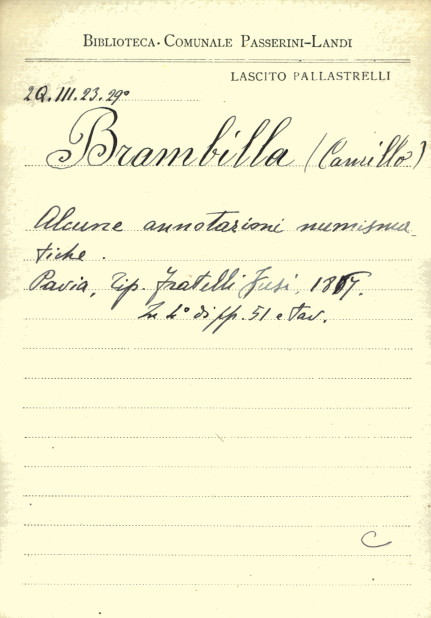 BIBLIOTECA COMUNALE PASSERINI-LANDI
LASCITO PALLASTRELLI
2Q.III.23.29°
Brambilla (Camillo)
Alcune annotazioni numisma-
tiche.
Pavia, Tip. Fratelli Fusi,
In 4° di pp. 51 e tav.
C